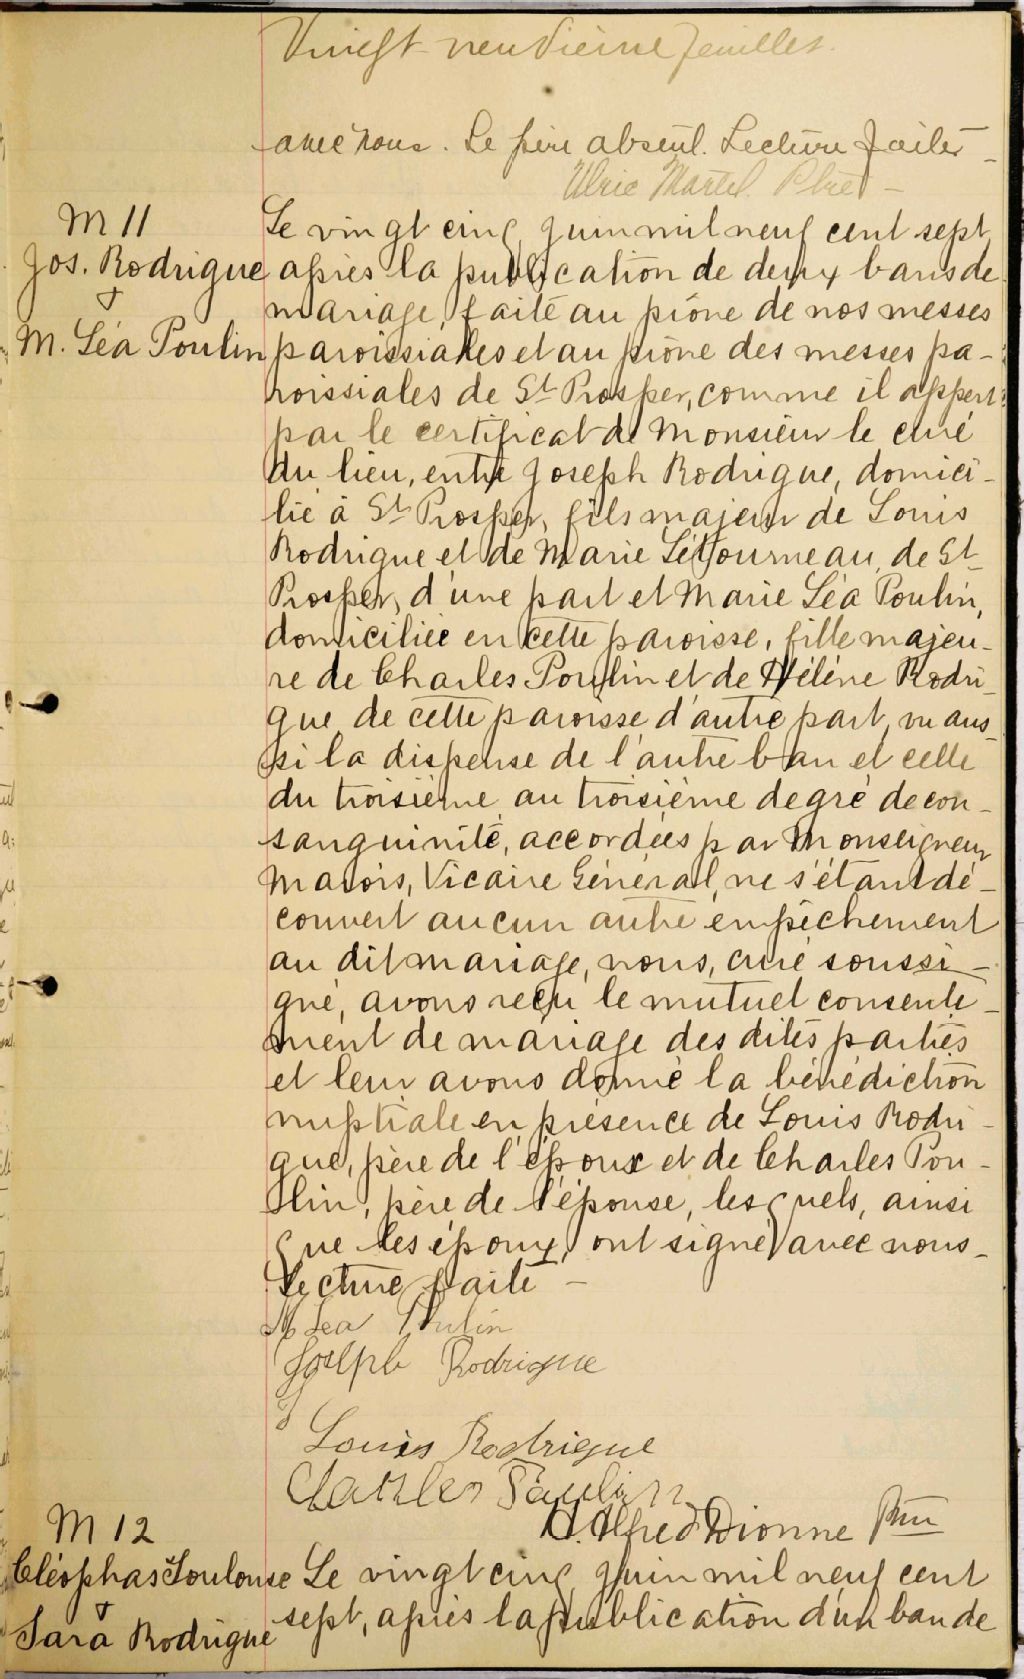 Vingt neuvième feuillet.
avec nous. Le père absent. Lecture faite –
Ulric Martel. Ptre –
M 11
Jos. Rodrigue
&
M. Léa Poulin
Le vingt cinq Juin mil neuf cent sept
après la publication de deux bans de
mariage, faite au prône de nos messes
paroissiales et au prône des messes pa-
roissiales de St Prosper, comme il appert
par le certificat de Monsieur le curé
du lieu, entre Joseph Rodrigue, domici-
lié à St Prosper, fils majeur de Louis
Rodrigue et de Marie Létourneau, de St
Prosper, d'une part et Marie Léa Poulin,
domiciliée en cette paroisse, fille majeu-
re de Charles Poulin et de Hélène Rodri-
gue de cette paroisse d'autre part, vu aus-
si la dispense de l'autre ban et celle
du troisième au troisième degré de con-
sanguinité, accordées par Monseigneur
Marois, Vicaire Général, ne s'étant dé-
couvert aucun autre empêchement
au dit mariage, nous, curé soussi-
gné, avons reçu le mutuel consente-
ment de mariage des dites parties
et leur avons donné la bénédiction
nuptiale en présence de Louis Rodri-
gue, père de l'époux et de Charles Pou-
lin, père de l'épouse, lesquels, ainsi
que les époux, ont signé avec nous-
Lecture faite –
M Lea Poulin
Joseph Rodrigue
J
Louis Rodrigue
Charles Paulin
H. Alfred Dionne Ptre
M 12
Cléophas Toulouse
&
Sara Rodrigue
Le vingt cinq Juin mil neuf cent
sept, après la publication d'un ban de